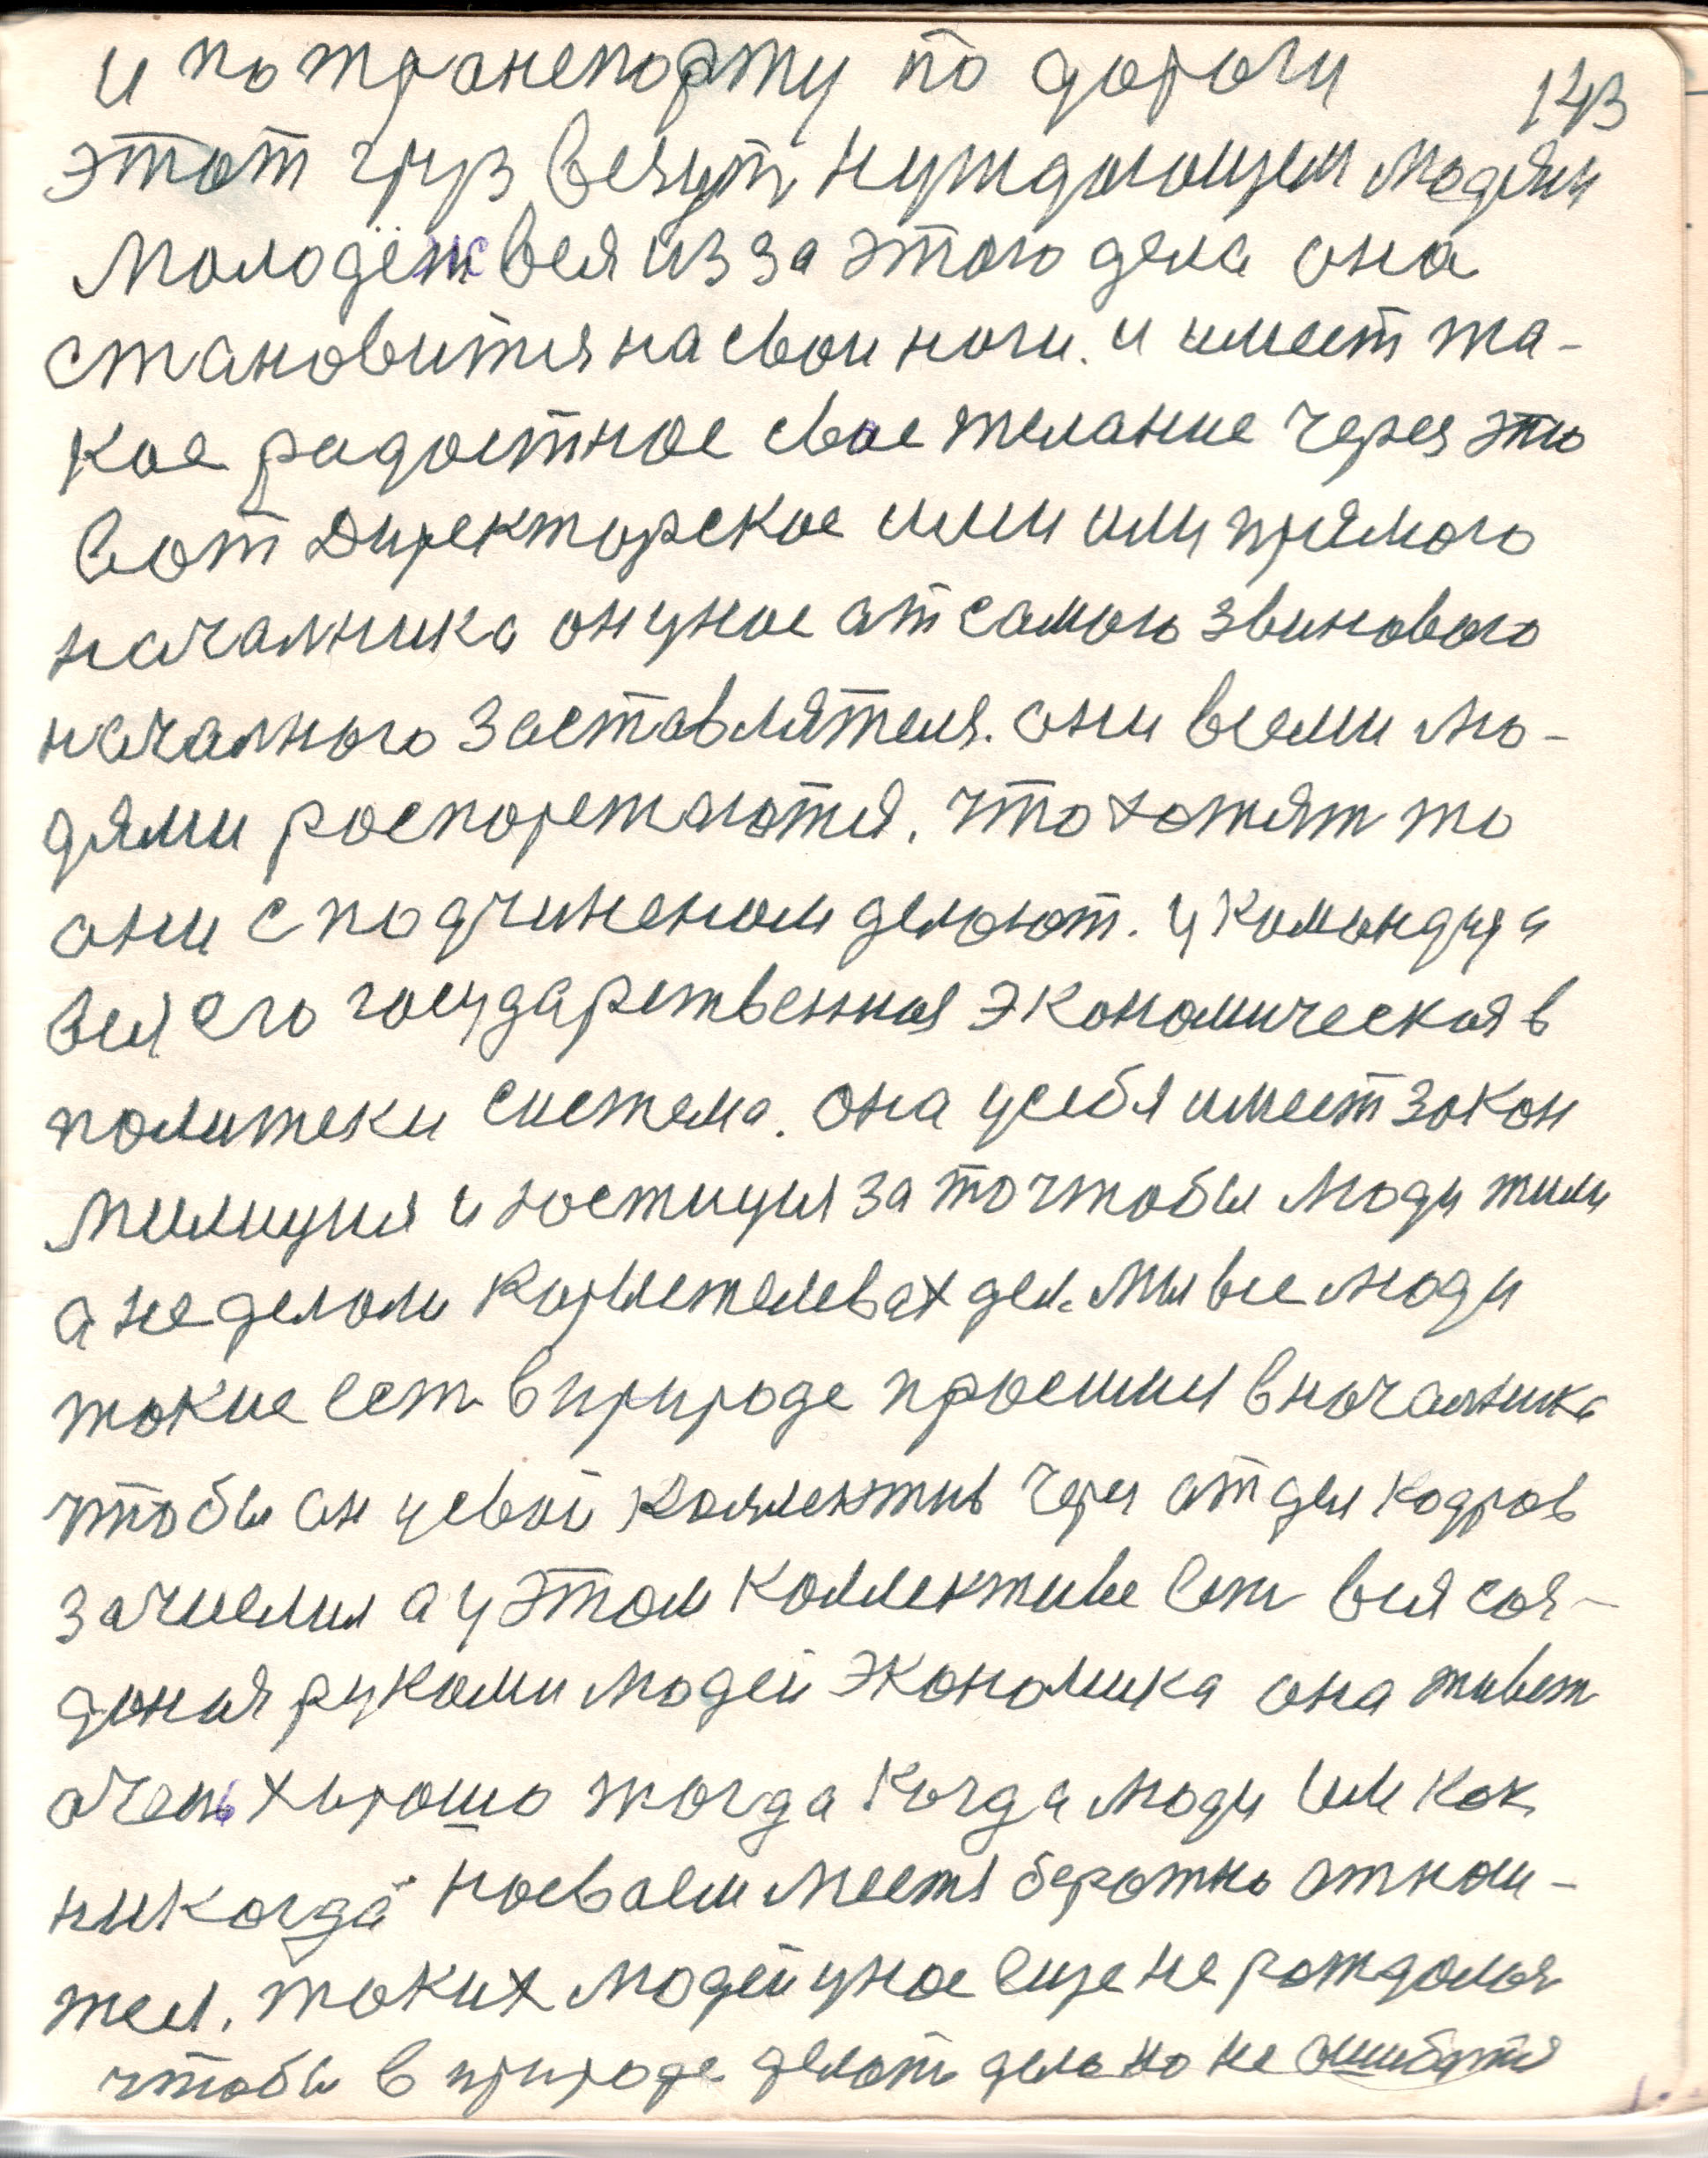 и по транспорту по дороги
143
этот груз везут нуждающем людям
молодёж вся из за этого дела она
становится на свои ноги. и имеет та-
кое радостное свое желание через это
вот Директорское или или прямого
началника он у нас от самого звинового
началного заставлятеля. они всеми лю-
дями роспорежаются. что хотят то
они с подчиненом делают. и командуя
вся его государственная экономическая в
политеки система. она у себя имеет закон
милиция и юстиция за то чтобы люди жили
а не делали карыстелевах дел. Мы все люди
токие есть в природе просимся в началника
чтобы он у свой коллектив через отдел кодров
зачислил а у этом коллективе есть вся соз-
даная руками людей экономика она живет
очень хорошо тогда когда люди или как
никогда на своем месте беротно относи-
тся. таких людей у нас еще не рождалося
чтобы в природе делать дело но не ошибатся